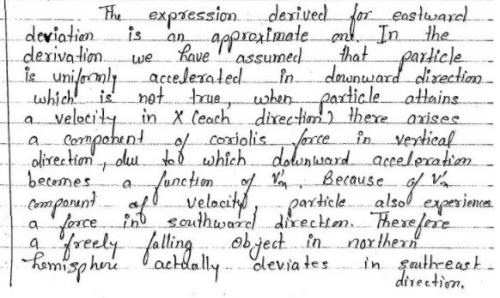 The expression derived for eastward
deviation is an approximate one. In the
derivation we have assumed that particle
is uniformly accelerated in downward direction
which is not true, when particle attains
a velocity in X (each direction) there arises
a component of coriolis force in vertical
direction, due to which downward acceleration
becomes a function of V'x. Because of V'x
component of velocity, particle also experiences
a force in southward direction. Therefore
a freely falling object in northern
hemisphere actually deviates in south-east
direction.